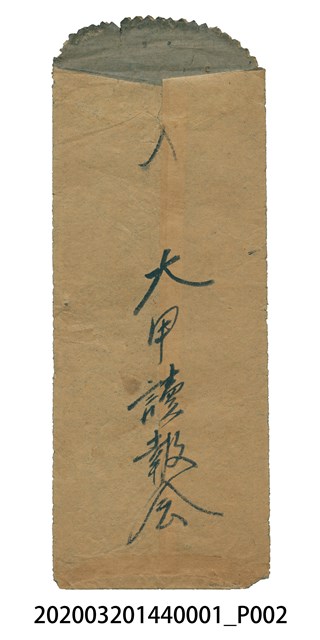 大甲讀報会
202003201440001_P002